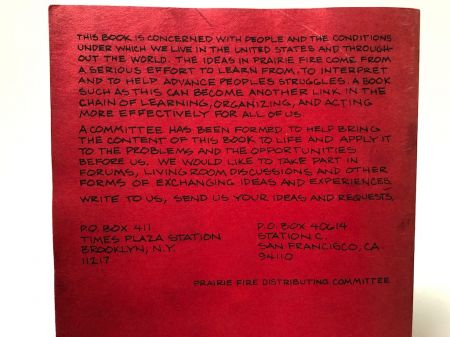 THIS BOOK IS CONCERNED WITH PEOPLE AND THE CONDITIONS
UNDER WHICH WE LIVE IN THE UNITED STATES AND THROUGH-
OUT THE WORLD. THE IDEAS IN PRAIRIE FIRE COME FROM
A SERIOUS EFFORT TO LEARN FROM, TO INTERPRET
AND TO HELP ADVANCE PEOPLES STRUGGLES. A BOOK
SUCH AS THIS CAN BECOME ANOTHER LINK IN THE
CHAIN OF LEARNING, ORGANIZING, AND ACTING
MORE EFFECTIVELY FOR ALL OF US.
A COMMITTEE HAS BEEN FORMED, TO HELP BRING
THE CONTENT OF THIS BOOK TO LIFE AND APPLY IT
TO THE PROBLEMS AND THE OPPORTUNITIES
BEFORE US. WE WOULD LIKE TO TAKE PART IN
FORUMS, LIVING ROOM DISCUSSIONS AND OTHER
FORMS OF EXCHANGING IDEAS AND EXPERIENCES.
WRITE TO US, SEND US YOUR IDEAS AND REQUESTS.
P.O. BOX 411
TIMES PLAZA STATION
BROOKLYN, N.Y.
11217
P.O. BOX 40614
STATION C.
SAN FRANCISCO, CA.
94110
PRAIRIE FIRE DISTRIBUTING COMMITTEE